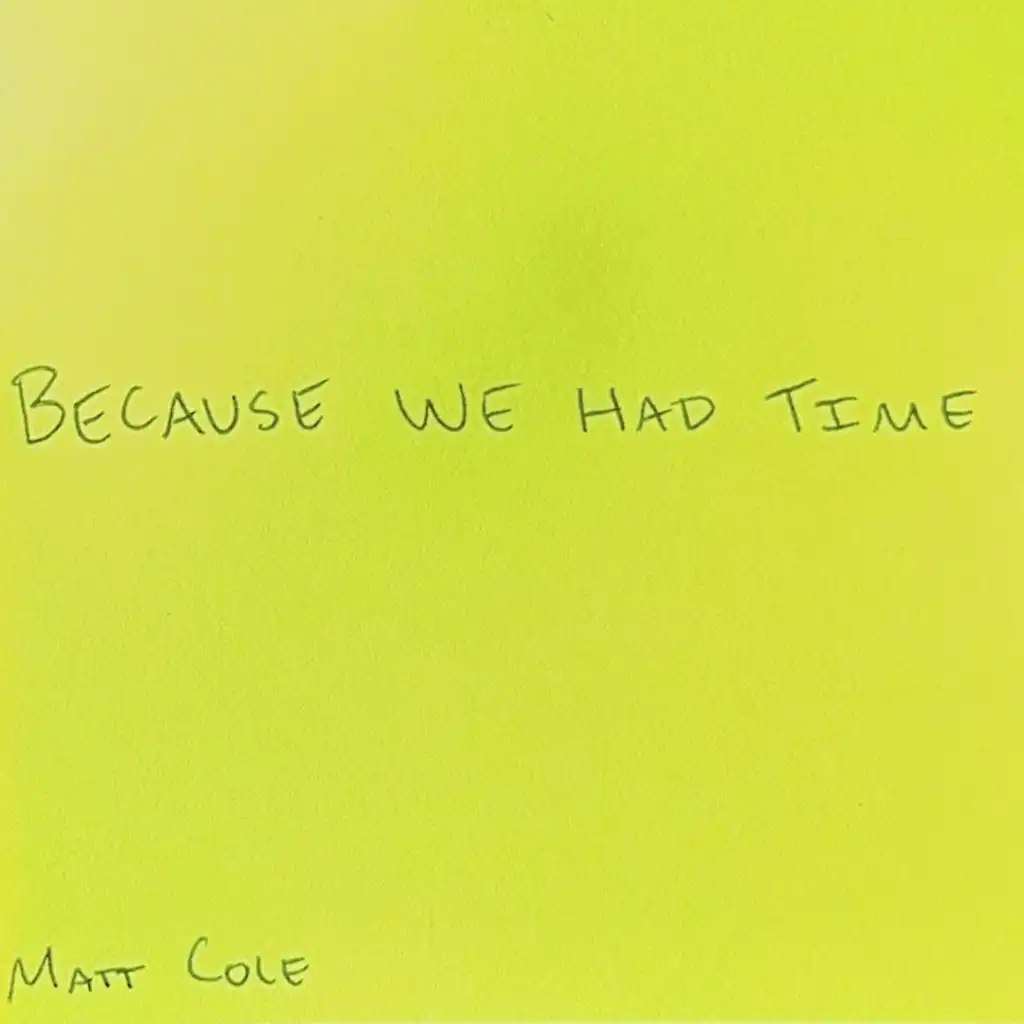 BECAUSE WE HAD TIME
MATT COLE